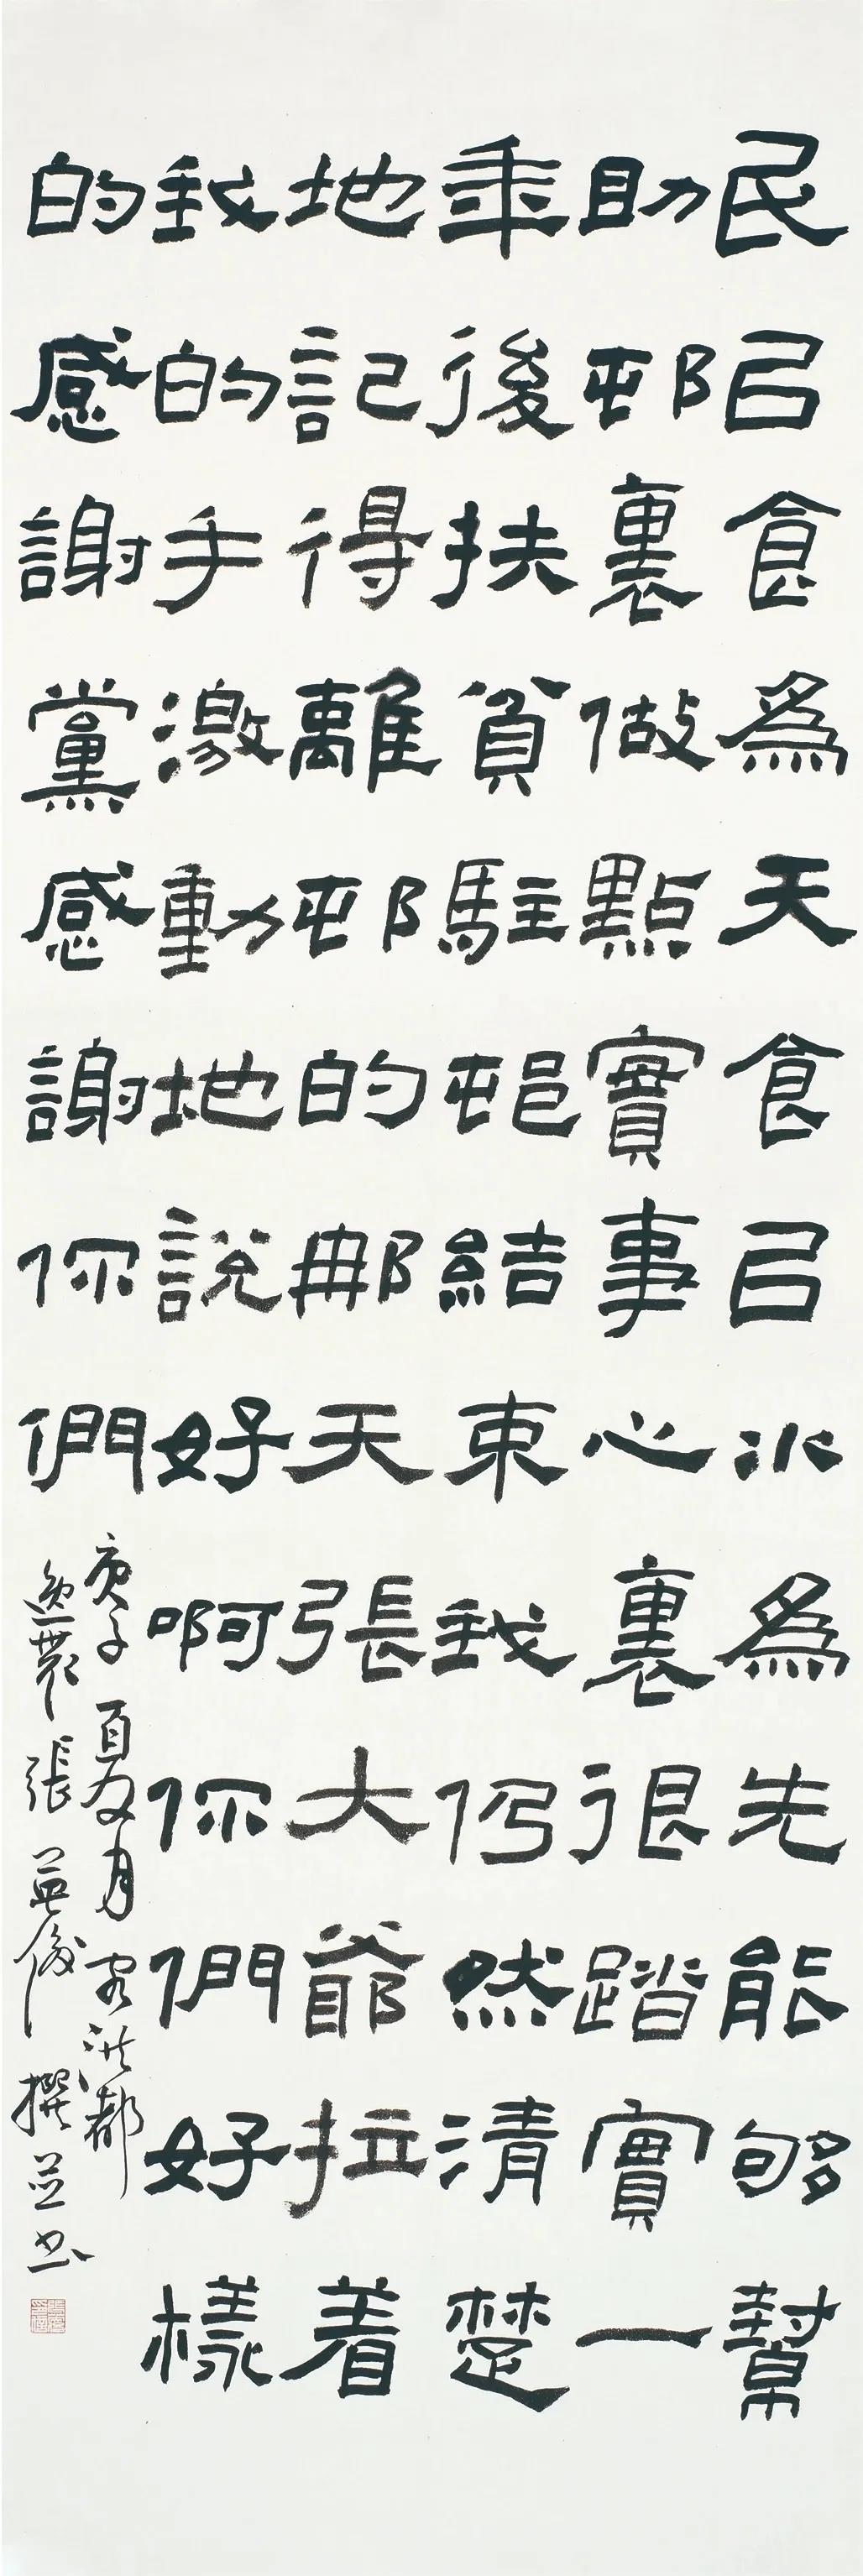 民㠯食爲天食㠯水爲先能够幫
助邨裏做點實事心裏很踏實一
年後扶貧駐邨結束我仍然清楚
地記得離邨的那天張大爺拉着
我的手激動地説好啊你們好樣
的感謝黨感謝你們
庚子夏月客洪都
逸農張英俊撰並書